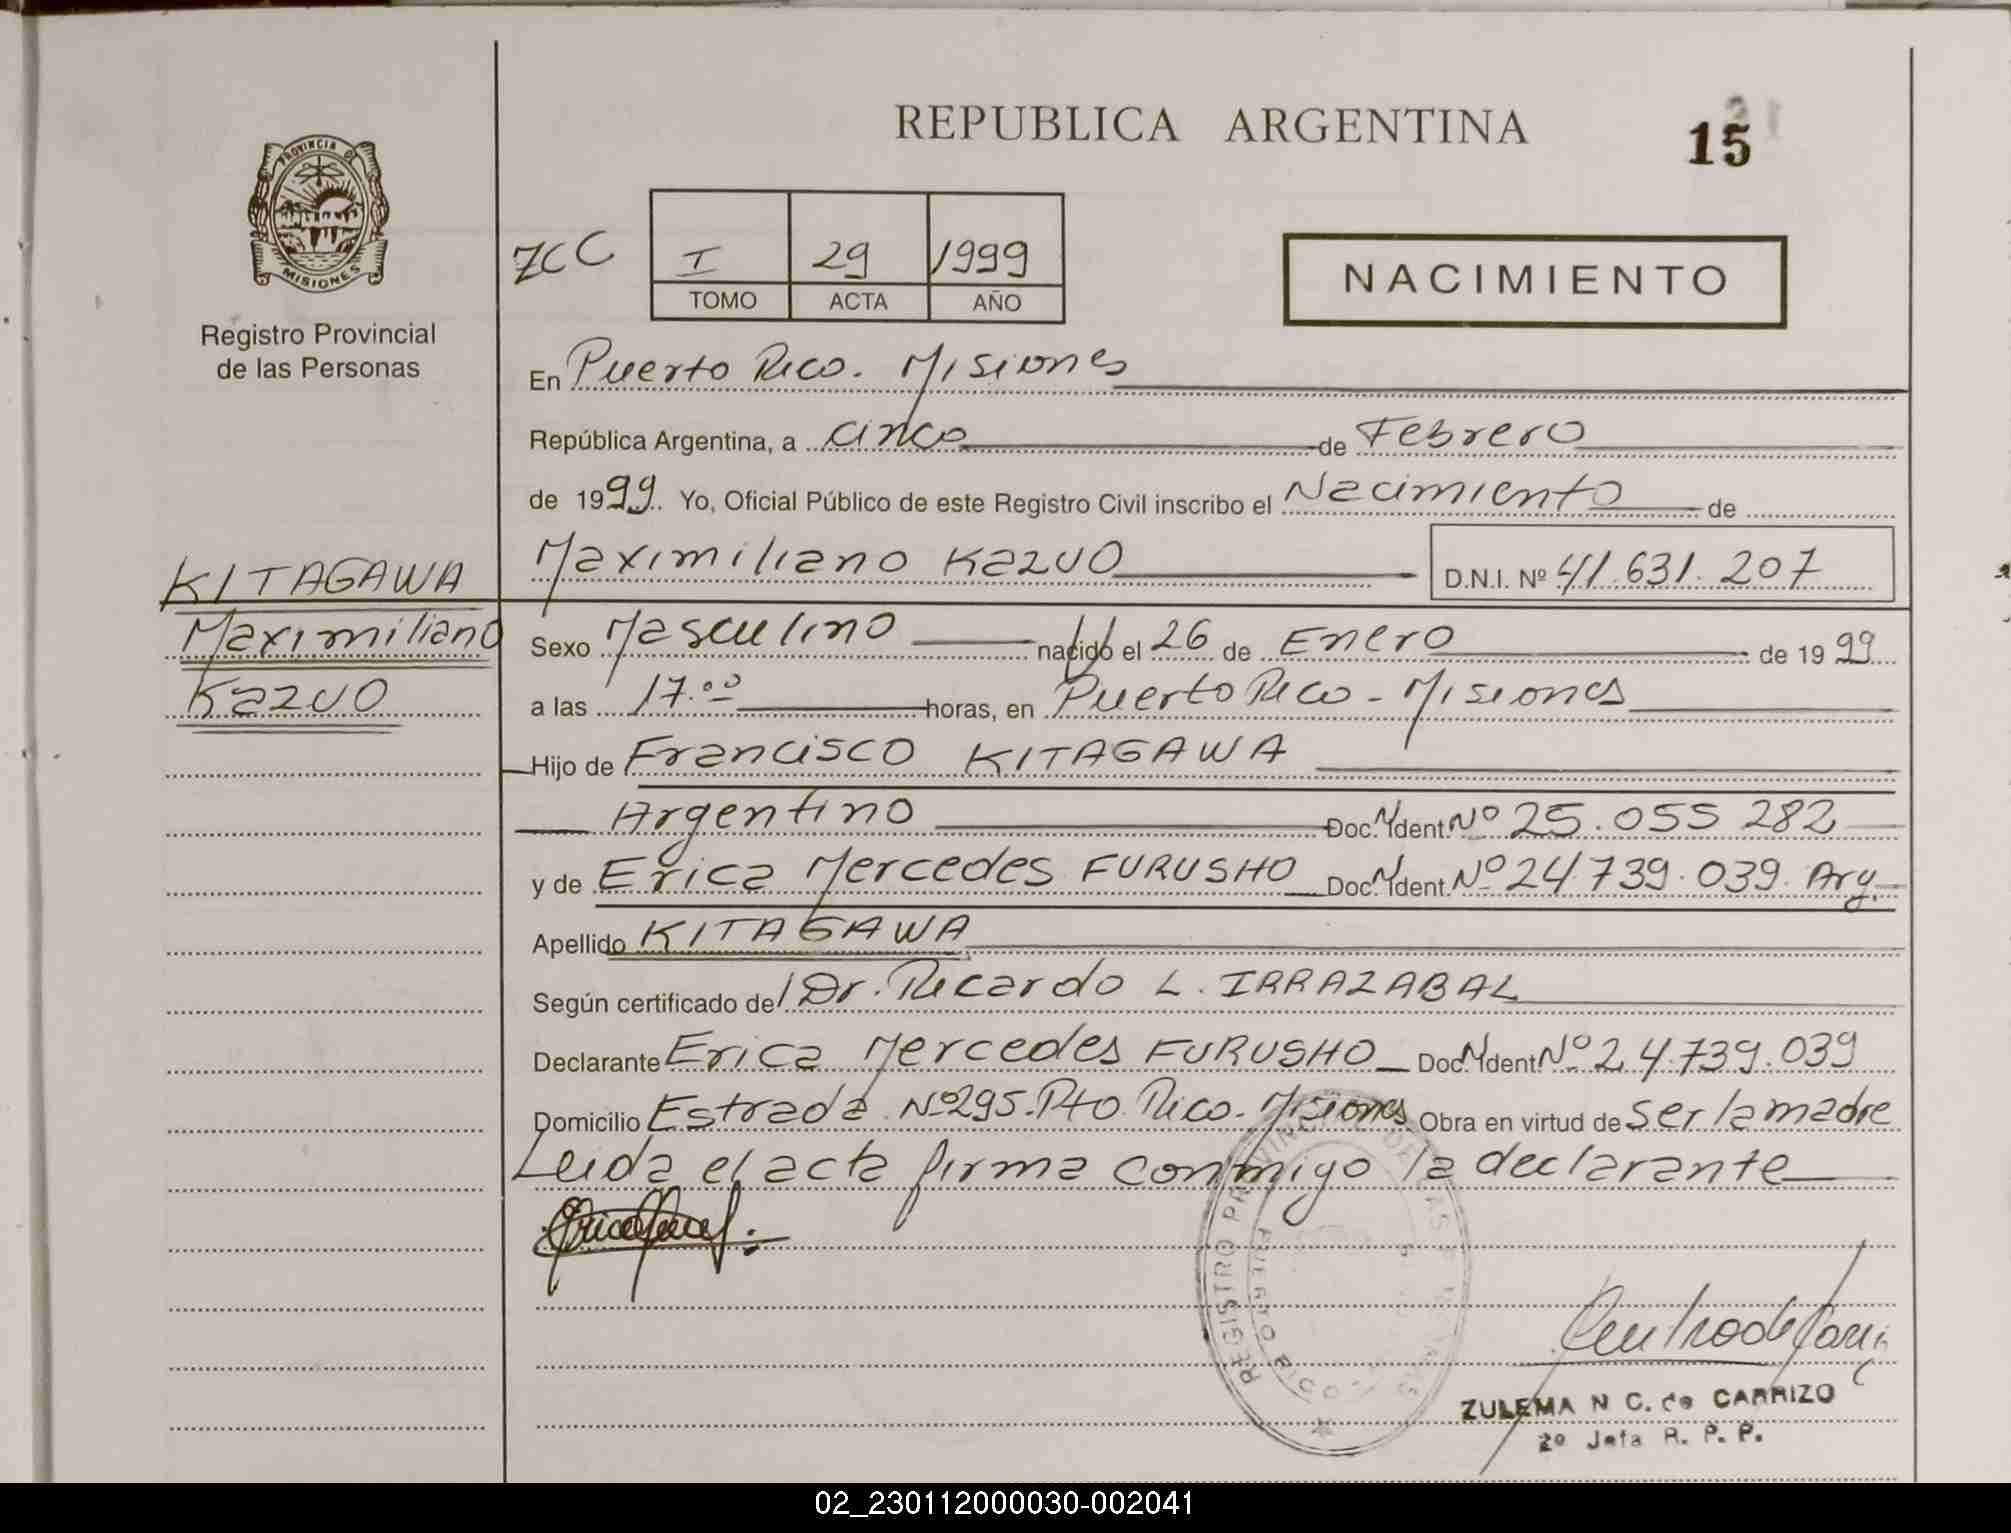 REPUBLICA ARGENTINA
15
PROVINCIA DE MISIONES
Registro Provincial
de las Personas
ZCC
I 29 1999
TOMO ACTA AÑO
NACIMIENTO
En Puerto Rico. Misiones
República Argentina, a cinco de Febrero
de 1999. Yo, Oficial Público de este Registro Civil inscribo el Nacimiento de
Maximiliano Kazuo D.N.I. Nº 41.631.207
KITAGAWA
Maximiliano
Kazuo
Sexo Masculino nacido el 26 de Enero de 1999
a las 17.00 horas, en Puerto Rico - Misiones
Hijo de Francisco KITAGAWA
Argentino Doc. Ident. Nº 25.055 282
y de Erica Mercedes FURUSHO Doc. Ident. Nº 24.739.039. Arg.
Apellido KITAGAWA
Según certificado del Dr. Ricardo L. IRRAZABAL
Declarante Erica Mercedes FURUSHO Doc. Ident Nº 24.739.039
Domicilio Estrada Nº 295. Pto. Rico. Misiones Obra en virtud de ser la madre
Leida el acta firma conmigo la declarante
REGISTRO PROVINCIAL DE LAS PERSONAS
PUERTO RICO
ZULEMA N C. de CARRIZO
2º Jefa R. P. P.
02_230112000030-002041